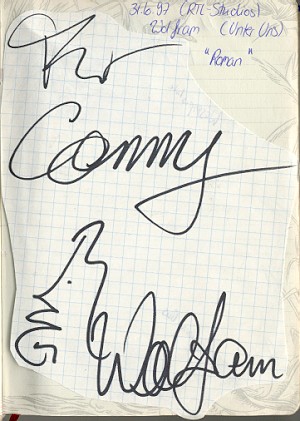 31.6.97 (RTL-Studios)
Wolfram (Unter Uns)
"Roman"
Für
Conny
Wolfram